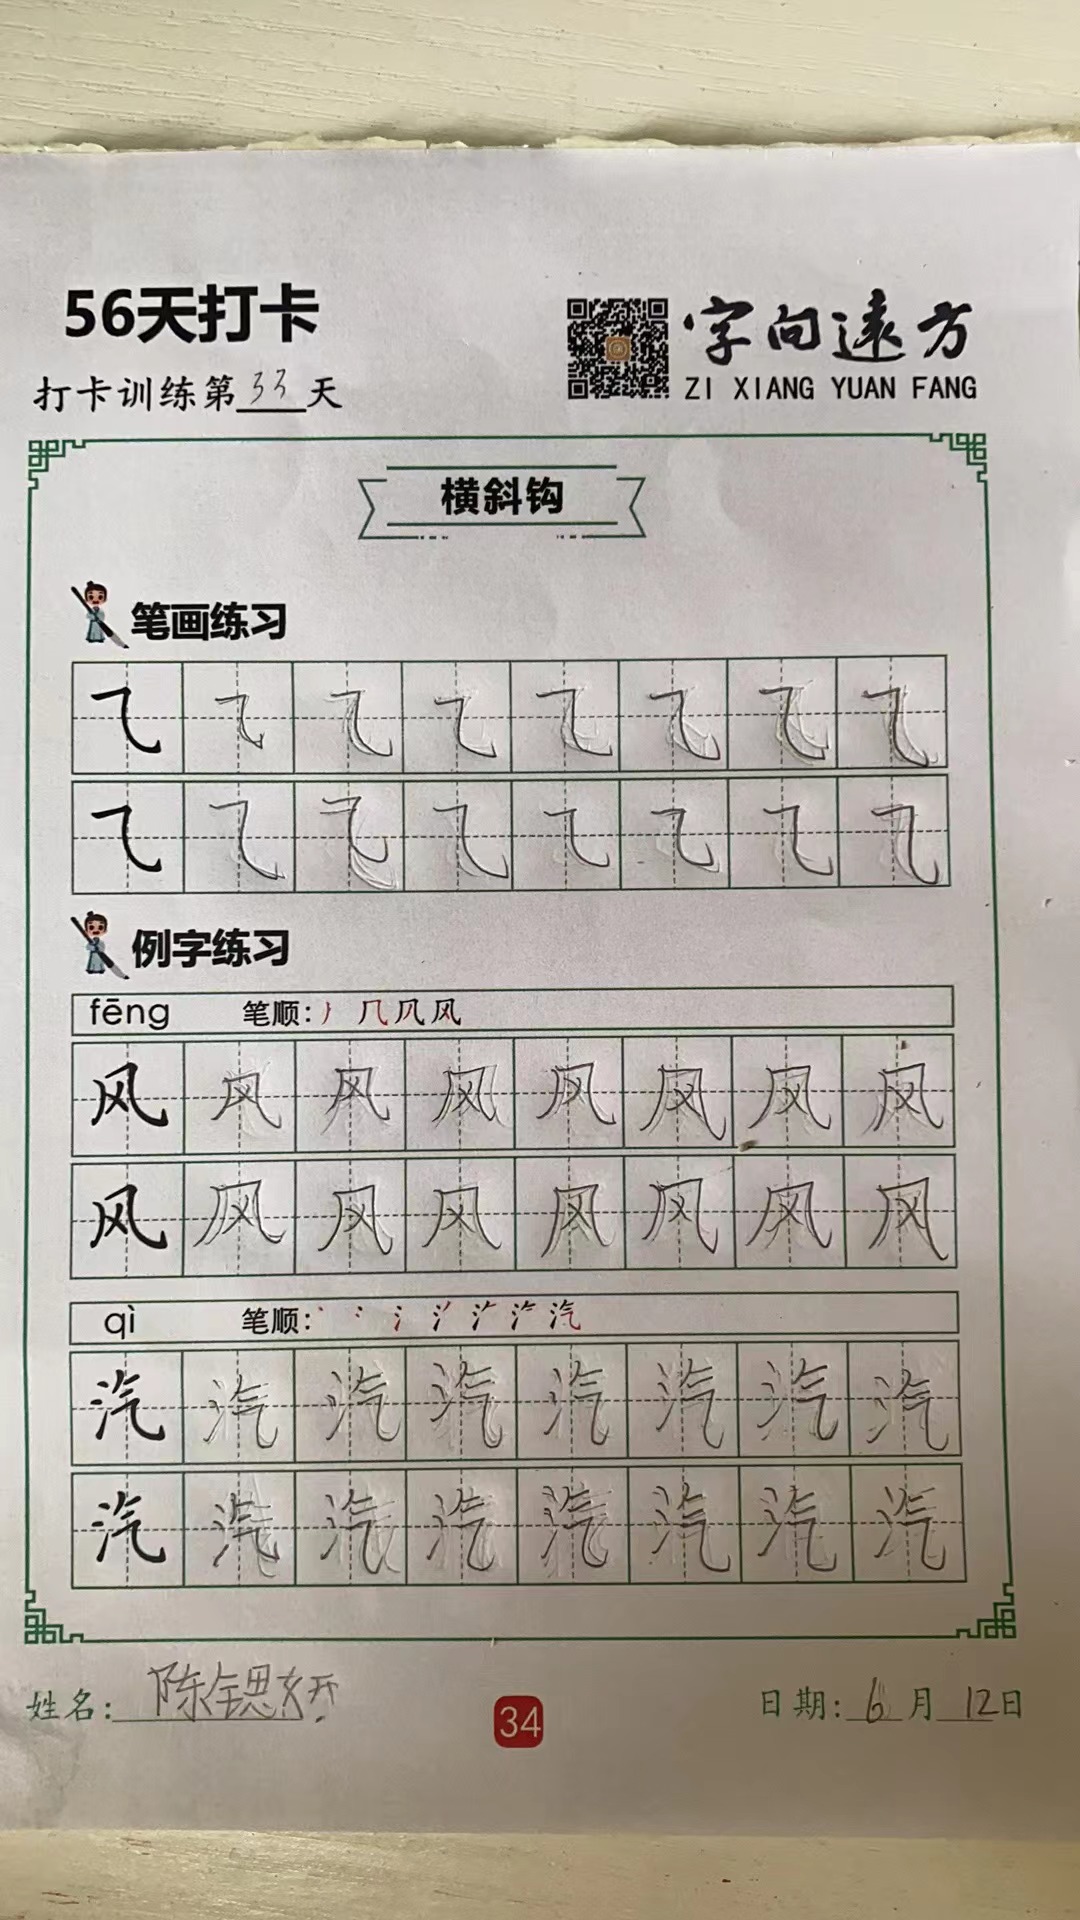 56天打卡
字向遠方
打卡训练第33天
ZI XIANG YUAN FANG
横斜钩
笔画练习
⺄ ⺄ ⺄ ⺄ ⺄ ⺄ ⺄ ⺄
⺄ ⺄ ⺄ ⺄ ⺄ ⺄ ⺄ ⺄
例字练习
fēng 笔顺: 丿 几 风
风 风 风 风 风 风 风 风
风 风 风 风 风 风 风 风
qì 笔顺: 丶 冫 氵 汽
汽 汽 汽 汽 汽 汽 汽 汽
汽 汽 汽 汽 汽 汽 汽 汽
姓名: 陈思妍
34
日期: 6月12日